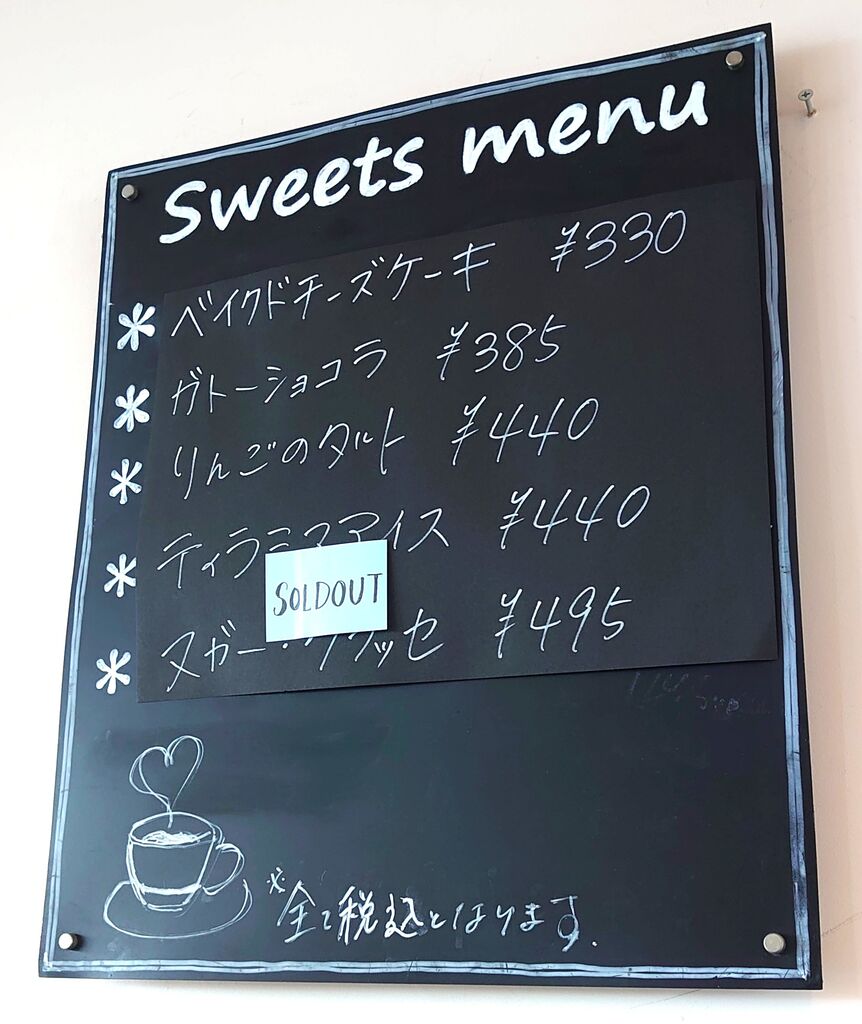 Sweets menu
* ベイクドチーズケーキ ¥330
* ガトーショコラ ¥385
* りんごのタルト ¥440
* ティラミスアイス ¥440
SOLDOUT
* ヌガー・グラッセ ¥495
※全て税込となります.